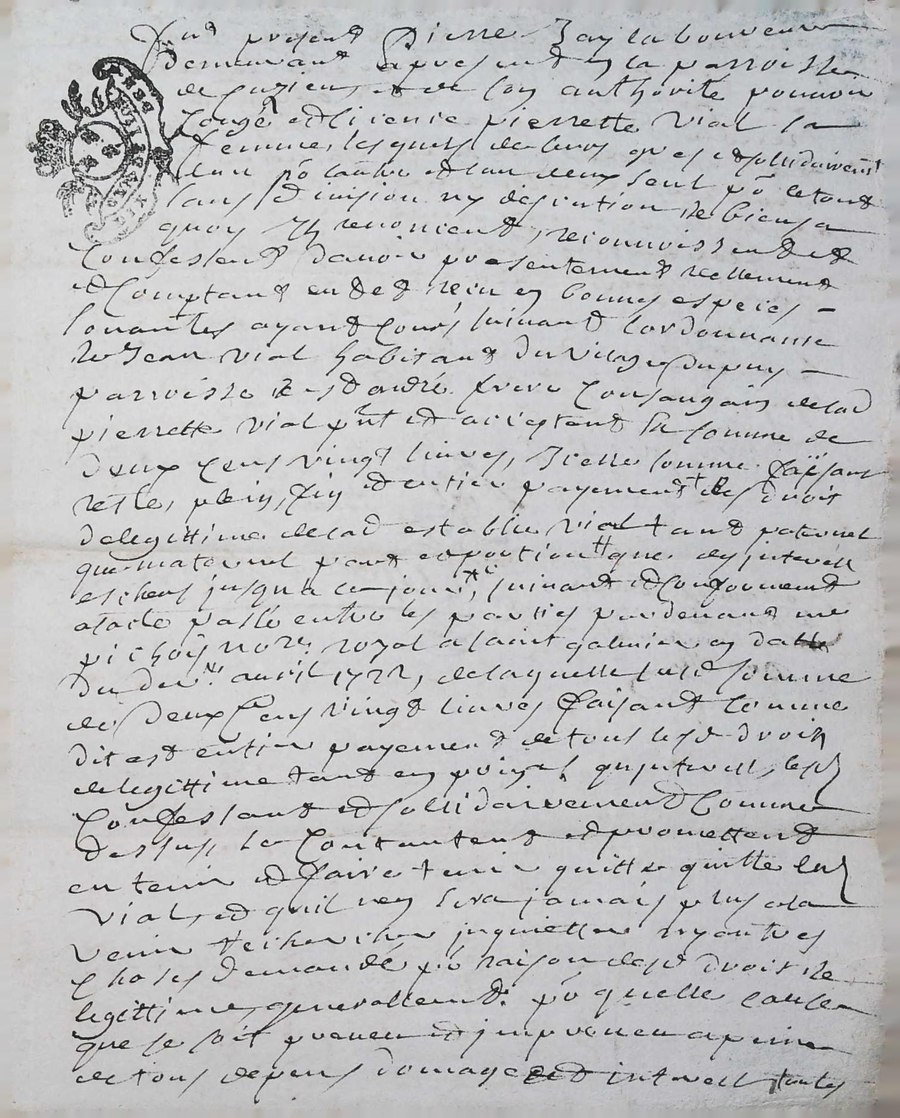 present Pierre Jay laboureur
demeurant apresent en la parroisse
de et de son authorité pouvoir
congé et licence pierrette vial sa
femme, lesquels de leurs gres et sollidairemt
lun po lautre et lun deux seul po le tout
sans division ny discution de biens a
quoy ils renoncent, reconnoissent et
confessent davoir presentement reellement
et comptant eu et receu en bonnes especes
sonantes ayant cours suivant lordonnance
de Jean vial habitant du vilage Dupuy
parroisse de st andré frere consanguin de lad
pierrette vial pnt et acceptant la somme de
deux cens vingt livres, Icelle somme faisant
reste, plein, fin et entier payement des droits
de legittime de lad estable vial tant paternel
que maternel part et portion que des interest
escheus jusqua ce jour, suivant et conformement
a lacte passé entre les parties pardevant me
pichon nore royal a saint galmier en datte
du avril 1722, de laquelle susd somme
de Deux Cens vingt livres faisant comme
dit est entier payement de tous lesd droits
de legittime tant en principal, qu'interest, lesd
confessant et sollidairement comme
dessus, se contantent et promettent
en tenir et faire tenir quitte quitte led
vial, et quil nen sera jamais plus a la
venir recherché inquietté ny autres
choses demandé po raison desd droits de
legittime, generallement po quelle cause
que se soit preveu et impreveu a peine
de tous depens domages et interest toutes